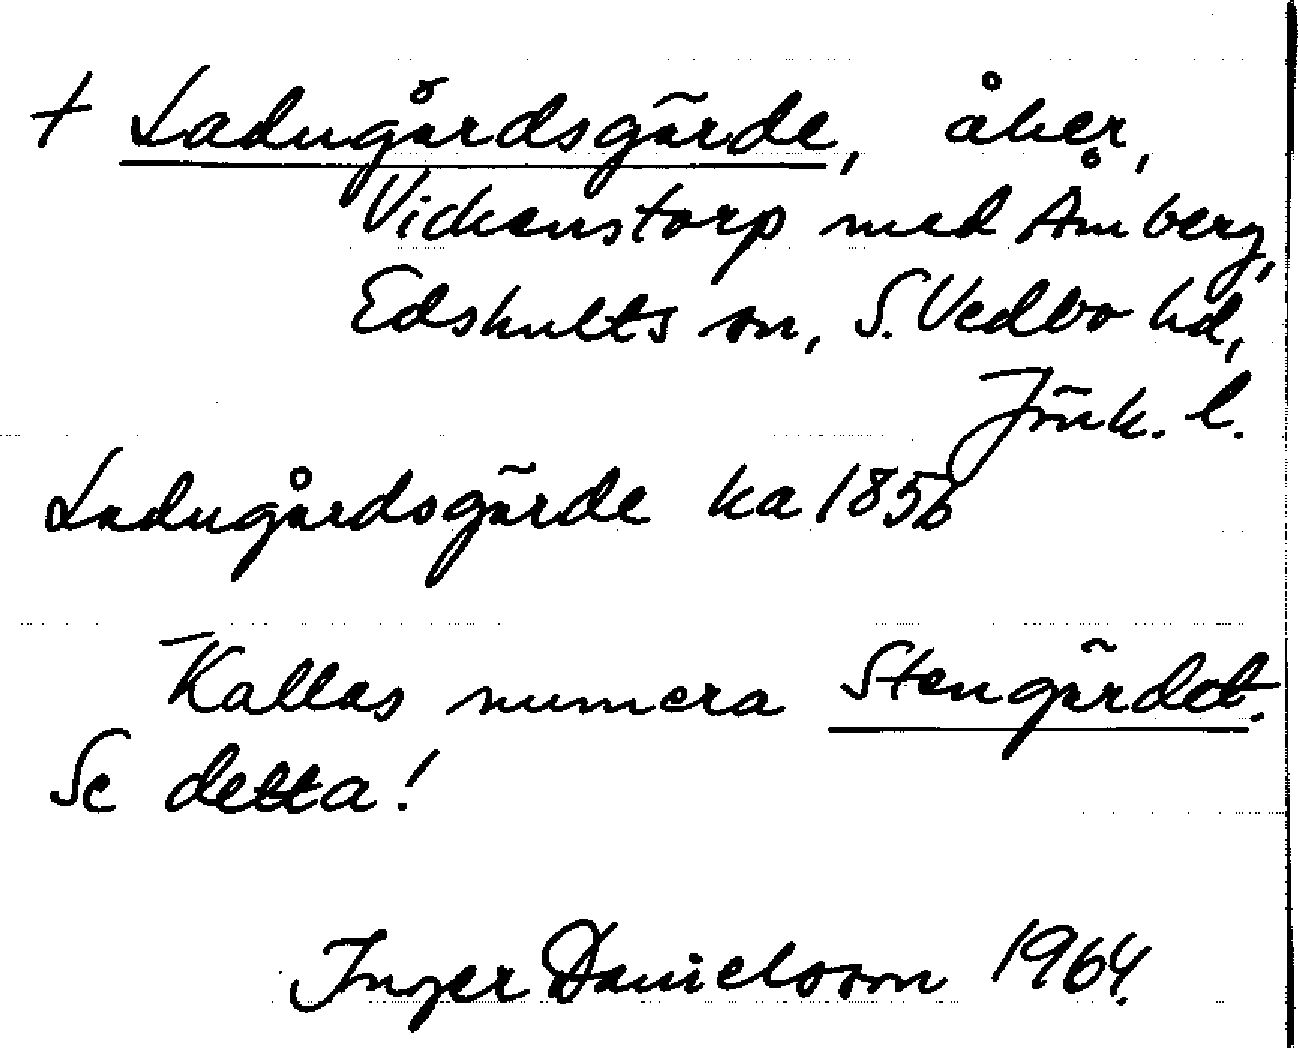 + Ladugårdsgärde, åker,
Vickenstorp med Åmberg,
Edshults sn, S. Vedbo hd,
Jönk. l.
Ladugårdsgärde ka 1856
Kallas numera Stengärdet.
Se detta!
Inger Danielsson 1964.